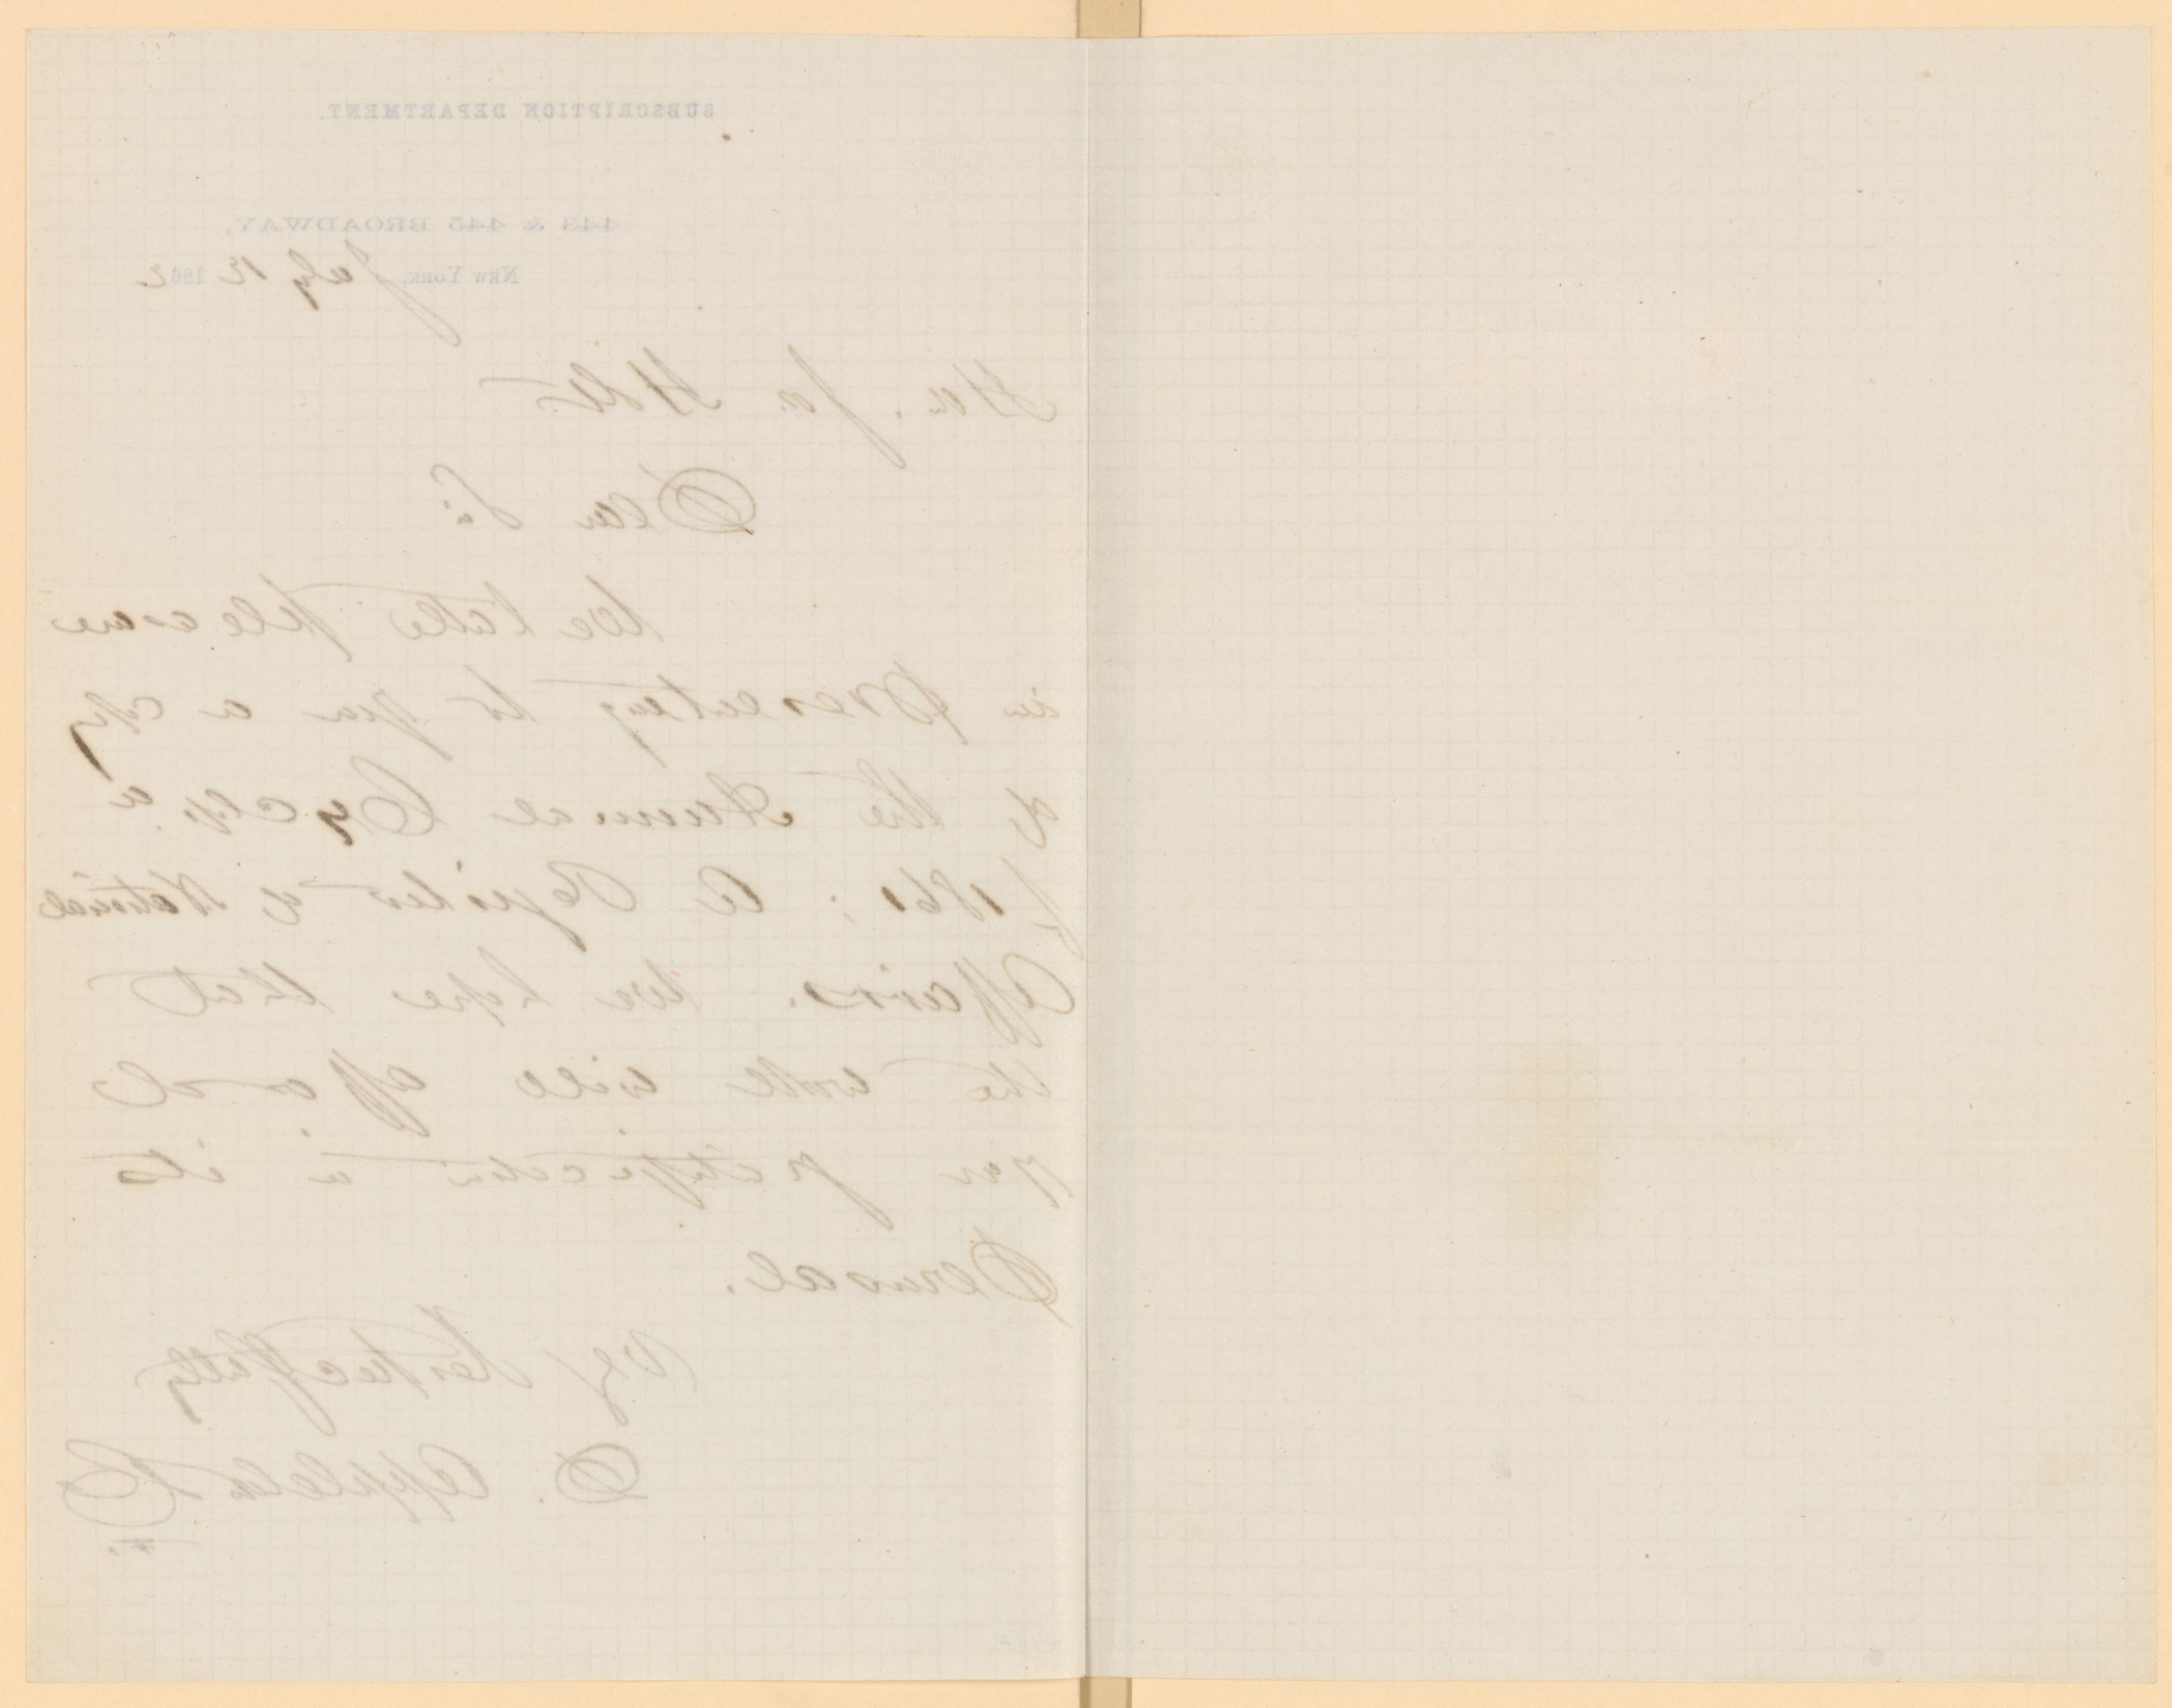 SUBSCRIPTION DEPARTMENT.
443 & 445 BROADWAY,
New York, July 12 1862
Hon. Jos. Holt
Dear Sir
We take pleasure
in presenting to you a copy
of the Annual Cyclopa
for 1861; a Register of National
Affairs. We hope that
the work will afford
you satisfaction in its
perusal.
Very Respectfully
D. Appleton & Co